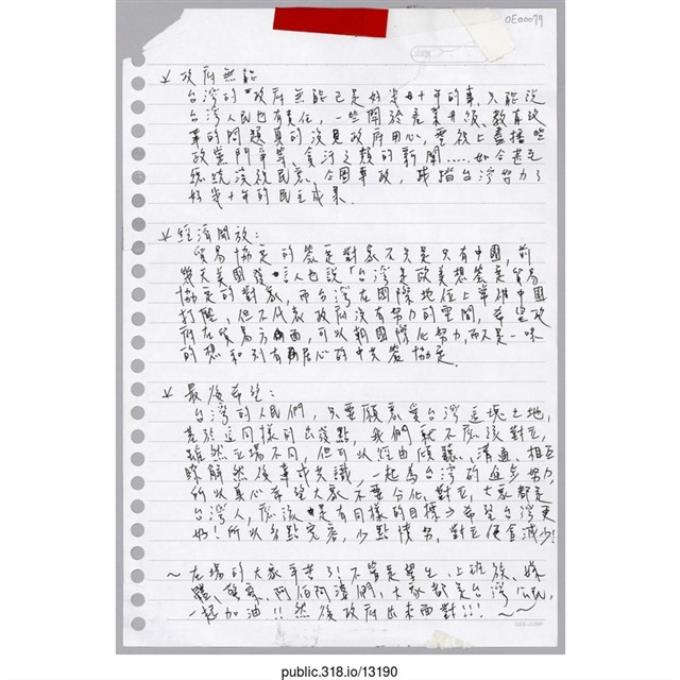 OE00079
政府無能
台灣的政府無能已是好幾十年的事,只能說
台灣人民也有責任,一些關於產業升級、教育改
革的問題真的沒見政府用心,電視上盡播些
政黨鬥爭等、貪汙之類的新聞.....如今
總統 民意、 成果.
好幾十年的民主成果.
經濟開放:
貿易協定的簽定對象不只是只有中國,前
幾天美國發言人也說「台灣是歐美想簽定貿易
協定的對象,而台灣在國際地位上畢 中國
打壓,但不代表政府沒有努力的空間,希望政
府在貿易方面,可以朝國際化努力,而不是一味
的想和別有居心的中共簽協定.
最後希望:
台灣的人民們,只要願意愛台灣這塊土地,
基於這同樣的出發點,我們就不應該對立,
雖然立場不同,但可以經由傾聽、溝通、相互
瞭解然後達成共識,一起為台灣的進步努力,
所以真心希望大家不要分化、對立,大家都是
台灣人,應該是有同樣的目標→希望台灣更
好!所以多點寬容,少點憤怒,對立便會減少!
~在場的大家辛苦了!不管是學生、上班族、媒
體、警察、阿伯阿婆們,大家都是台灣公民,
一起加油!!然後政府出來面對!!!~
public.318.io/13190